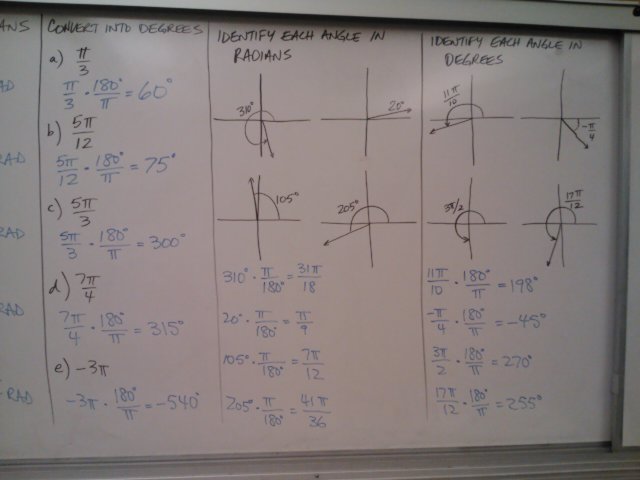 ANS
RAD
RAD
RAD
RAD
RAD
CONVERT INTO DEGREES
a) π/3
π/3 · 180°/π = 60°
b) 5π/12
5π/12 · 180°/π = 75°
c) 5π/3
5π/3 · 180°/π = 300°
d) 7π/4
7π/4 · 180°/π = 315°
e) -3π
-3π · 180°/π = -540°
IDENTIFY EACH ANGLE IN
RADIANS
310°
20°
105°
205°
310° · π/180° = 31π/18
20° · π/180° = π/9
105° · π/180° = 7π/12
205° · π/180° = 41π/36
IDENTIFY EACH ANGLE IN
DEGREES
11π/10
-π/4
3π/2
17π/12
11π/10 · 180°/π = 198°
-π/4 · 180°/π = -45°
3π/2 · 180°/π = 270°
17π/12 · 180°/π = 255°